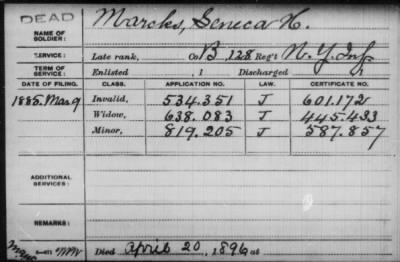 DEAD
NAME OF SOLDIER: Marcks, Seneca H.
SERVICE: Late rank, Co B, 128 Reg't N. Y. Inf.
TERM OF SERVICE: Enlisted , 1 Discharged , 1
DATE OF FILING. CLASS. APPLICATION NO. LAW. CERTIFICATE NO.
1885. Mar 9 Invalid, 534.351 J 601.172
Widow, 638.083 J 445.433
Minor, 819.205 J 587.857
ADDITIONAL SERVICES:
REMARKS:
Died April 20, 1896 at